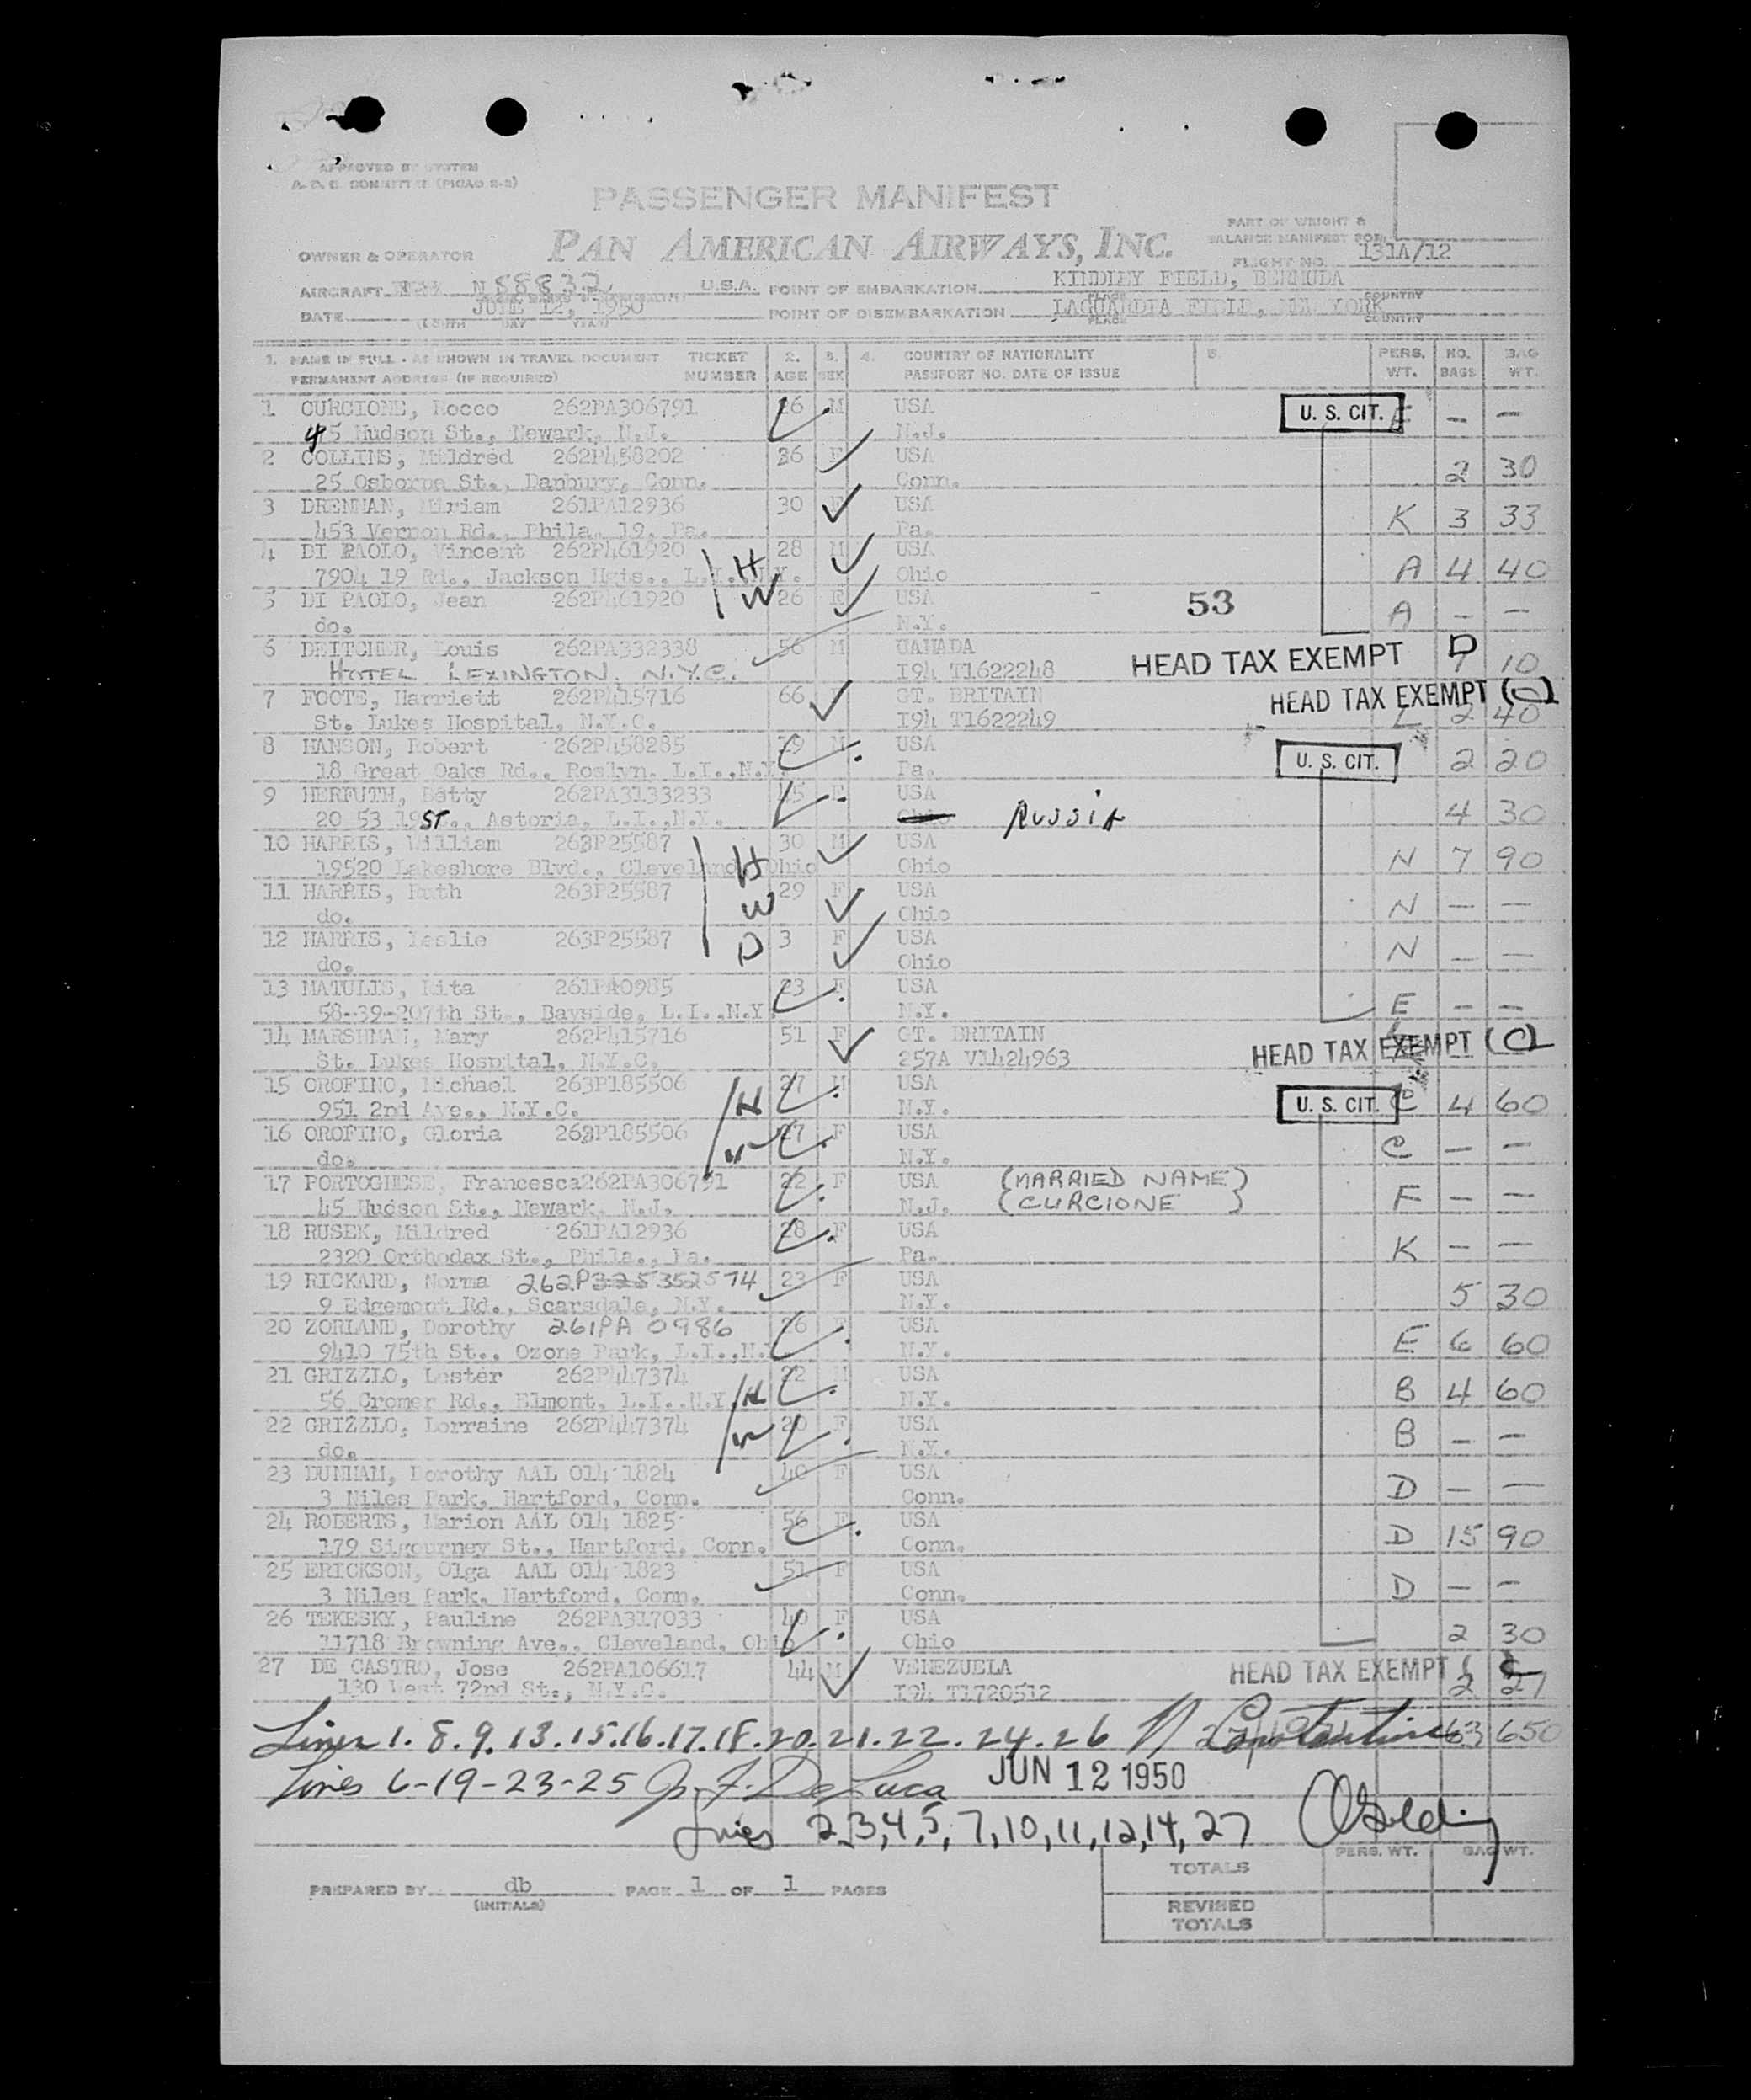 APPROVED BY SYSTEM
A.T.C. COMMITTEE (PICAO 2-2)
PASSENGER MANIFEST
PART OF WEIGHT &
BALANCE MANIFEST FOR
OWNER & OPERATOR PAN AMERICAN AIRWAYS, INC. FLIGHT NO. 131A/12
AIRCRAFT N 88832 U.S.A. POINT OF EMBARKATION KINDLEY FIELD, BERMUDA
PLACE COUNTRY
DATE JUNE 12, 1950 POINT OF DISEMBARKATION LAGUARDIA FIELD, NEW YORK
(MONTH DAY YEAR) PLACE COUNTRY
1. NAME IN FULL - AS SHOWN IN TRAVEL DOCUMENT TICKET 2. 3. 4. COUNTRY OF NATIONALITY 5. PERS. NO. BAG
PERMANENT ADDRESS (IF REQUIRED) NUMBER AGE SEX PASSPORT NO. DATE OF ISSUE WT. BAGS WT.
1 CURCIONE, Rocco 262PA306791 26 M USA U. S. CIT. — —
45 Hudson St., Newark, N.J. N.J.
2 COLLINS, Mildred 262P458202 36 F USA
25 Osborne St., Danbury, Conn. Conn. 2 30
3 DRENNAN, Miriam 261PA12936 30 F USA
453 Vernon Rd., Phila. 19, Pa. Pa. K 3 33
4 DI PAOLO, Vincent 262P461920 H 28 M USA
7904 19 Rd., Jackson Hgts., L.I.,N.Y. Ohio A 4 40
5 DI PAOLO, Jean 262P461920 W 26 F USA 53
do. N.Y. A — —
6 DEITCHER, Louis 262PA332338 56 M CANADA HEAD TAX EXEMPT D
HOTEL LEXINGTON, N.Y.C. I94 T1622248 1 10
7 FOOTE, Harriett 262P415716 66 GT. BRITAIN HEAD TAX EXEMPT (C)
St. Lukes Hospital, N.Y.C. I94 T1622249 L 2 40
8 HANSON, Robert 262P458285 29 M USA U. S. CIT.
18 Great Oaks Rd., Roslyn, L.I.,N.Y. Pa. 2 20
9 HERFUTH, Betty 262PA3133233 45 F USA
20 53 19ST., Astoria, L.I.,N.Y. Ohio RUSSIA 4 30
10 HARRIS, William 263P25587 H 30 M USA
19520 Lakeshore Blvd., Cleveland, Ohio Ohio N 7 90
11 HARRIS, Ruth 263P25587 W 29 F USA
do. Ohio N — —
12 HARRIS, Leslie 263P25587 D 3 F USA
do. Ohio N — —
13 MATULIS, Rita 261PA0985 23 F USA
58-39-207th St., Bayside, L.I.,N.Y. N.Y. E — —
14 MARSHMAN, Mary 262P415716 51 F GT. BRITAIN
St. Lukes Hospital, N.Y.C. 257A V1424963 HEAD TAX EXEMPT (C)
15 OROFINO, Michael 263P185506 H 27 M USA
951 2nd Ave., N.Y.C. N.Y. U. S. CIT. C 4 60
16 OROFINO, Gloria 263P185506 W 27 F USA
do. N.Y. C — —
17 PORTOGHESE, Francesca262PA306791 22 F USA (MARRIED NAME)
45 Hudson St., Newark, N.J. N.J. (CURCIONE) F — —
18 RUSEK, Mildred 261PA12936 28 F USA
2320 Orthodax St., Phila., Pa. Pa. K — —
19 RICKARD, Norma 262P325352574 23 F USA
9 Edgemont Rd., Scarsdale, N.Y. N.Y. 5 30
20 ZORLAND, Dorothy 261PA 0986 26 F USA
9410 75th St., Ozone Park, L.I.,N.Y. N.Y. E 6 60
21 GRIZZLO, Lester 262P447374 H 22 M USA
56 Cromer Rd., Elmont, L.I.,N.Y. N.Y. B 4 60
22 GRIZZLO, Lorraine 262P447374 W 20 F USA
do. N.Y. B — —
23 DUNHAM, Dorothy AAL 014 1824 40 F USA
3 Niles Park, Hartford, Conn. Conn. D — —
24 ROBERTS, Marion AAL 014 1825 56 F USA
179 Sigourney St., Hartford, Conn. Conn. D 15 90
25 ERICKSON, Olga AAL 014 1823 51 F USA
3 Niles Park, Hartford, Conn. Conn. D — —
26 TEKESKY, Pauline 262PA317033 40 F USA
11718 Browning Ave., Cleveland, Ohio Ohio 2 30
27 DE CASTRO, Jose 262PA106617 44 M VENEZUELA HEAD TAX EXEMPT
130 West 72nd St., N.Y.C. I94 T1720512 2 27
Lines 1.8.9.13.15.16.17.18.20.21.22.24.26 63 650
Lines 6-19-23-25 J. F. De Luca JUN 12 1950
Lines 2,3,4,5,7,10,11,12,14,27
PERS. WT. BAG WT.
TOTALS
PREPARED BY db PAGE 1 OF 1 PAGES
(INITIALS)
REVISED
TOTALS